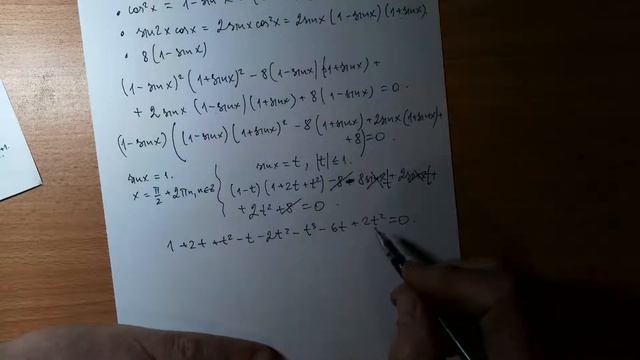 • cos²x = 1 - sin
• sin2x cosx = 2 sinx cos²x = 2 sinx (1-sinx)(1+sinx).
• 8(1-sinx)
(1-sinx)²(1+sinx)² - 8(1-sinx)(1+sinx) +
+ 2 sinx (1-sinx)(1+sinx) + 8(1-sinx) = 0.
(1-sinx)((1-sinx)(1+sinx)² - 8(1+sinx) + 2sinx(1+sinx) +
+8) = 0.
sinx = 1.
x = π/2 + 2πn, n∈Z
sinx = t, |t| ≤ 1.
(1-t)(1+2t+t²) - 8 - 8t + 2t +
+ 2t² + 8 = 0.
1 + 2t + t² - t - 2t² - t³ - 6t + 2t² = 0.